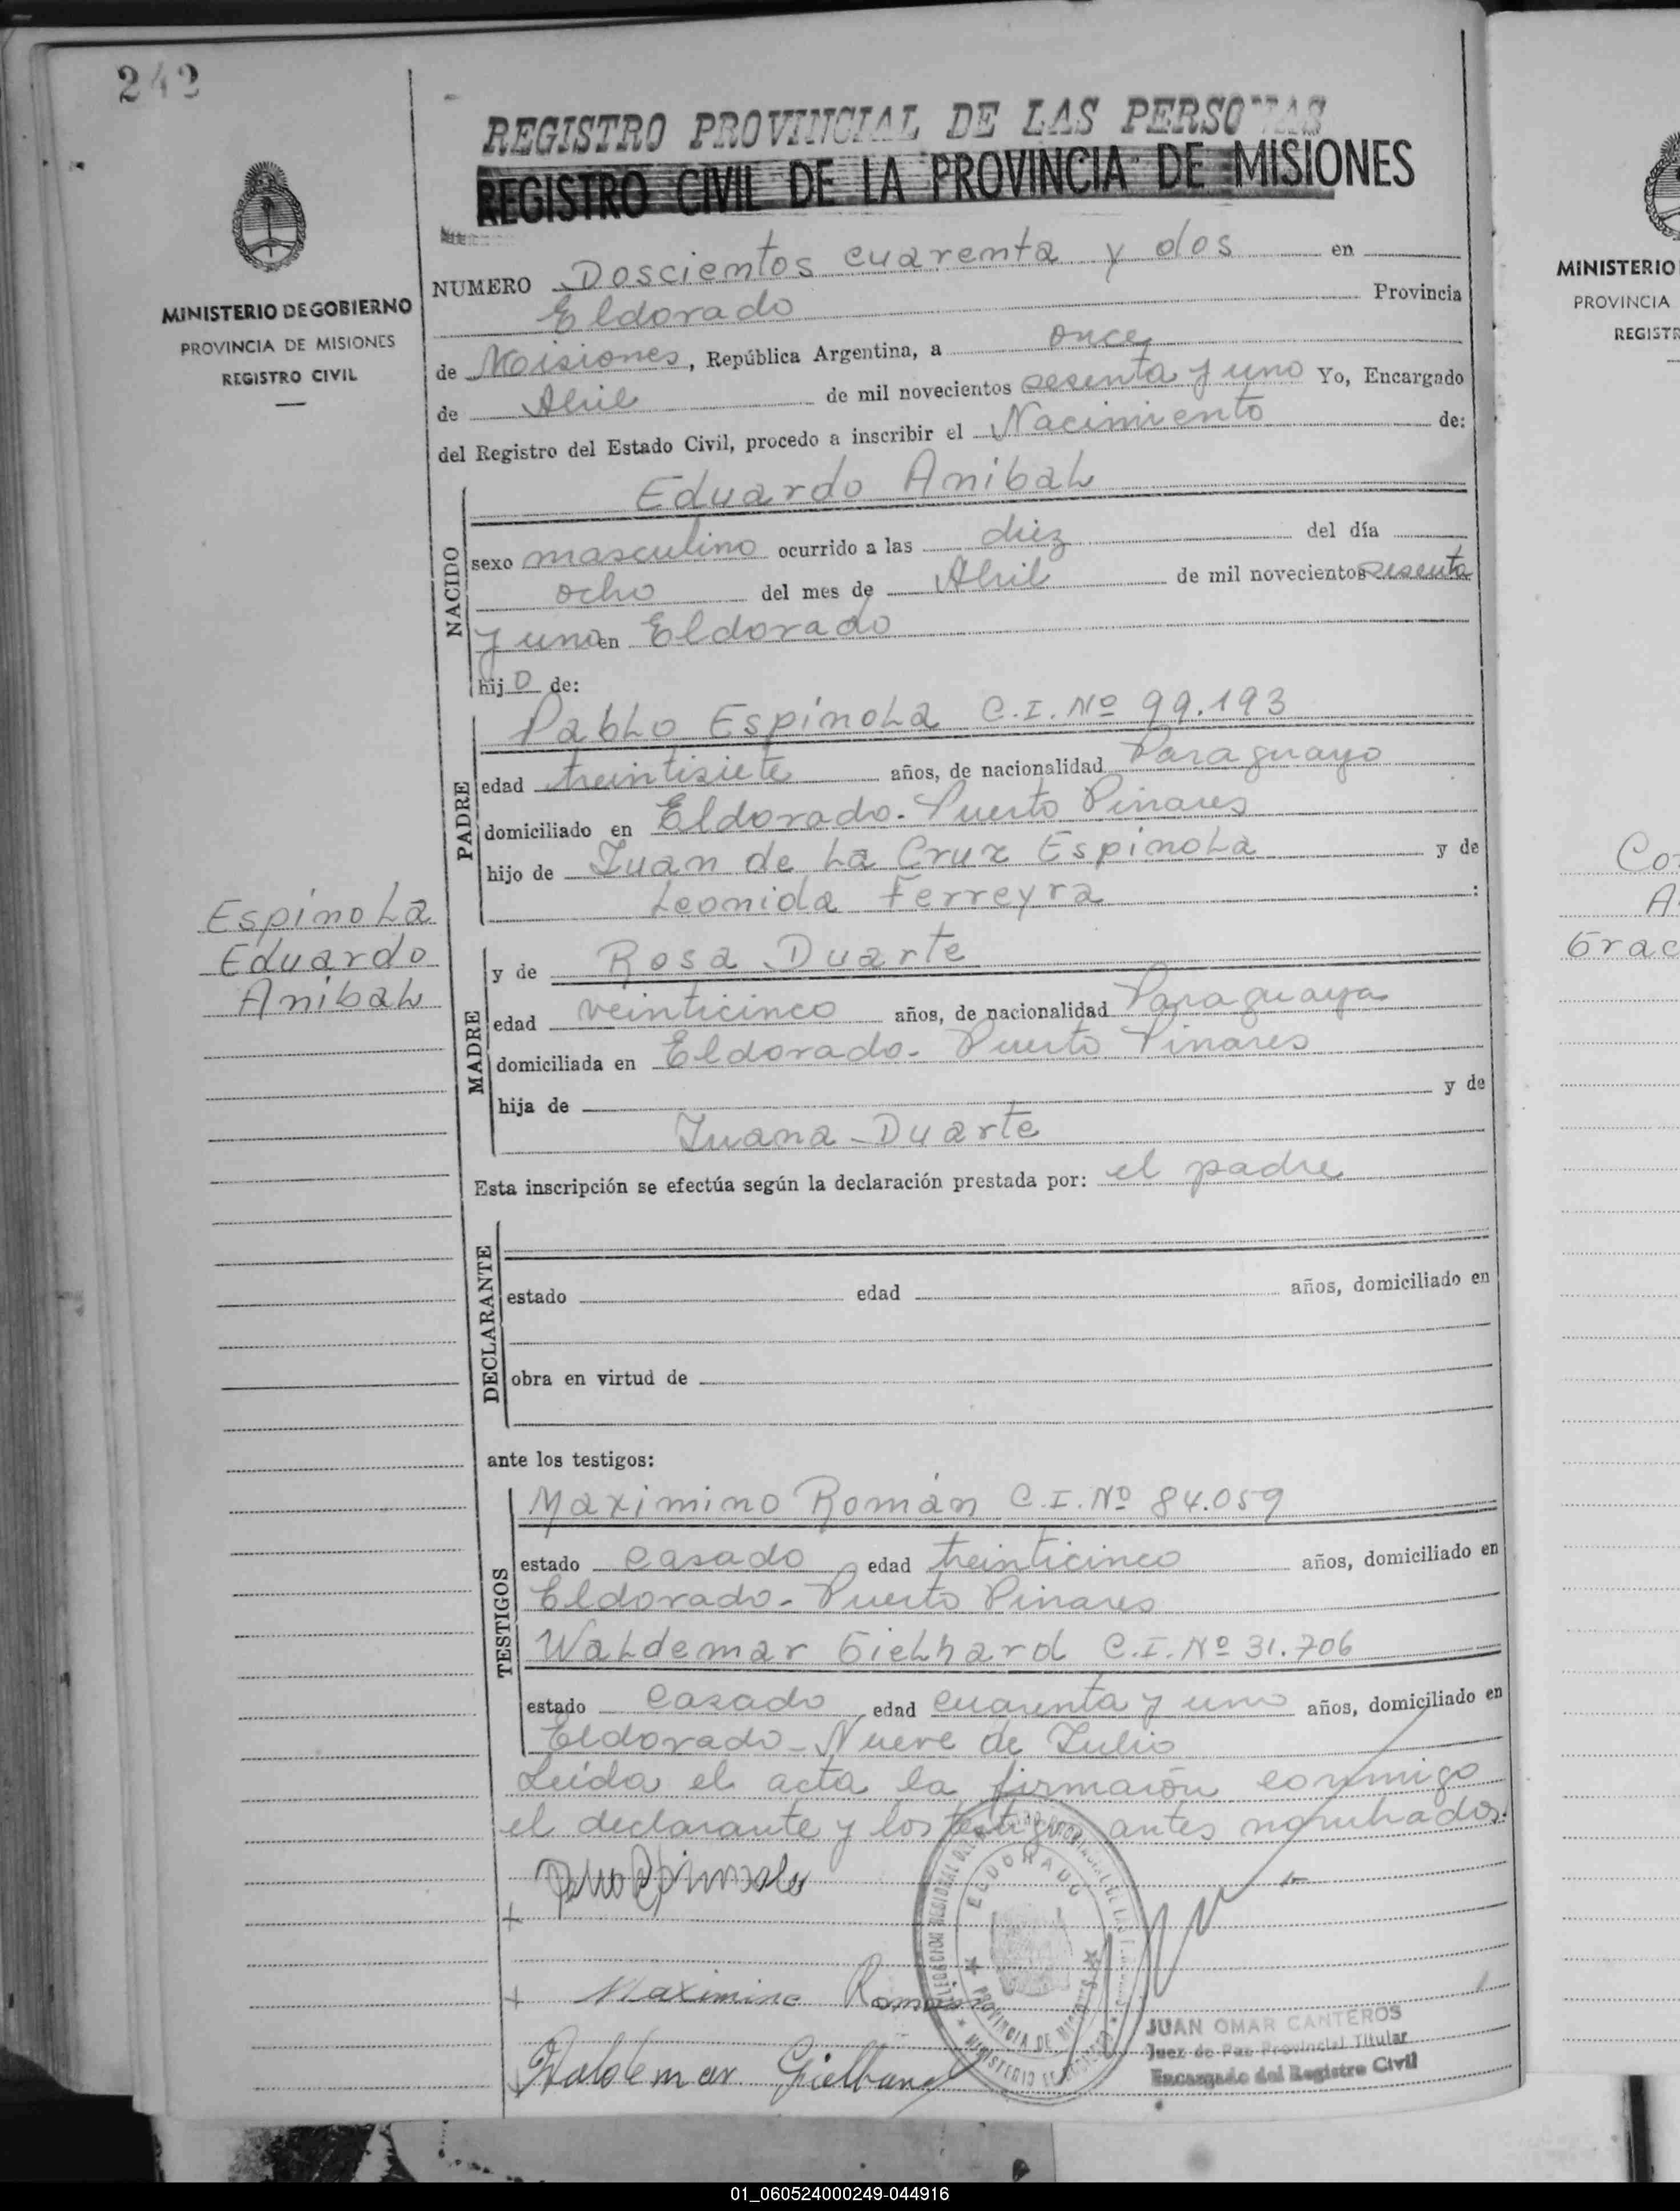 242
REGISTRO PROVINCIAL DE LAS PERSONAS
REGISTRO CIVIL DE LA PROVINCIA DE MISIONES
MINISTERIO DE GOBIERNO
PROVINCIA DE MISIONES
REGISTRO CIVIL
NUMERO Doscientos cuarenta y dos en
Eldorado Provincia
de Misiones, República Argentina, a once
de Abril de mil novecientos sesenta y uno Yo, Encargado
del Registro del Estado Civil, procedo a inscribir el Nacimiento de:
NACIDO
Eduardo Anibal
sexo masculino ocurrido a las diez del día
ocho del mes de Abril de mil novecientos sesenta
y uno en Eldorado
hijo de:
PADRE
Pablo Espinola C.I. Nº 99.193
edad treintisiete años, de nacionalidad Paraguayo
domiciliado en Eldorado - Puerto Pinares
hijo de Juan de la Cruz Espinola y de
Leonida Ferreyra :
Espinola
Eduardo
Anibal
MADRE
y de Rosa Duarte
edad veinticinco años, de nacionalidad Paraguaya
domiciliada en Eldorado - Puerto Pinares
hija de y de
Juana Duarte
Esta inscripción se efectúa según la declaración prestada por: el padre
DECLARANTE
estado edad años, domiciliado en
obra en virtud de
ante los testigos:
TESTIGOS
Maximino Román C.I. Nº 84.059
estado casado edad treinticinco años, domiciliado en
Eldorado - Puerto Pinares
Waldemar Gielhard C.I. Nº 31.706
estado casado edad cuarenta y uno años, domiciliado en
Eldorado - Nueve de Julio
Leída el acta la firmaron conmigo
el declarante y los testigos antes nombrados.
Maximino Roman
Waldemar
ELDORADO
PROVINCIA DE MISIONES
JUAN OMAR CANTEROS
Juez de Paz Provincial Titular
Encargado del Registro Civil
MINISTERIO
PROVINCIA
REGISTR
Co
A
Grac
01_060524000249-044916